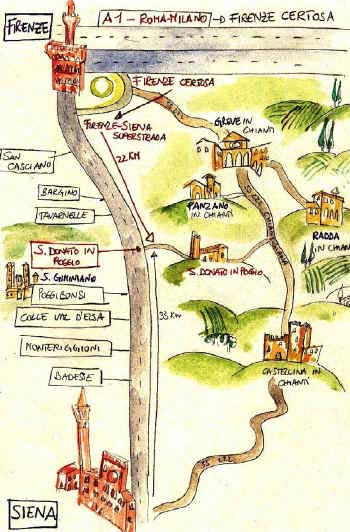 FIRENZE
A1 - ROMA-MILANO → FIRENZE CERTOSA
FIRENZE CERTOSA
FIRENZE-SIENA
SUPERSTRADA
22 KM
GREVE IN
CHIANTI
SAN
CASCIANO
BARGINO
TAVARNELLE
PANZANO
IN CHIANTI
RADDA
IN CHIANTI
S. DONATO IN
POGGIO
S. DONATO IN POGGIO
S. GIMINIANO
POGGIBONSI
38 KM
COLLE VAL D'ELSA
MONTERIGGIONI
CASTELLINA IN
CHIANTI
BADESSE
SIENA